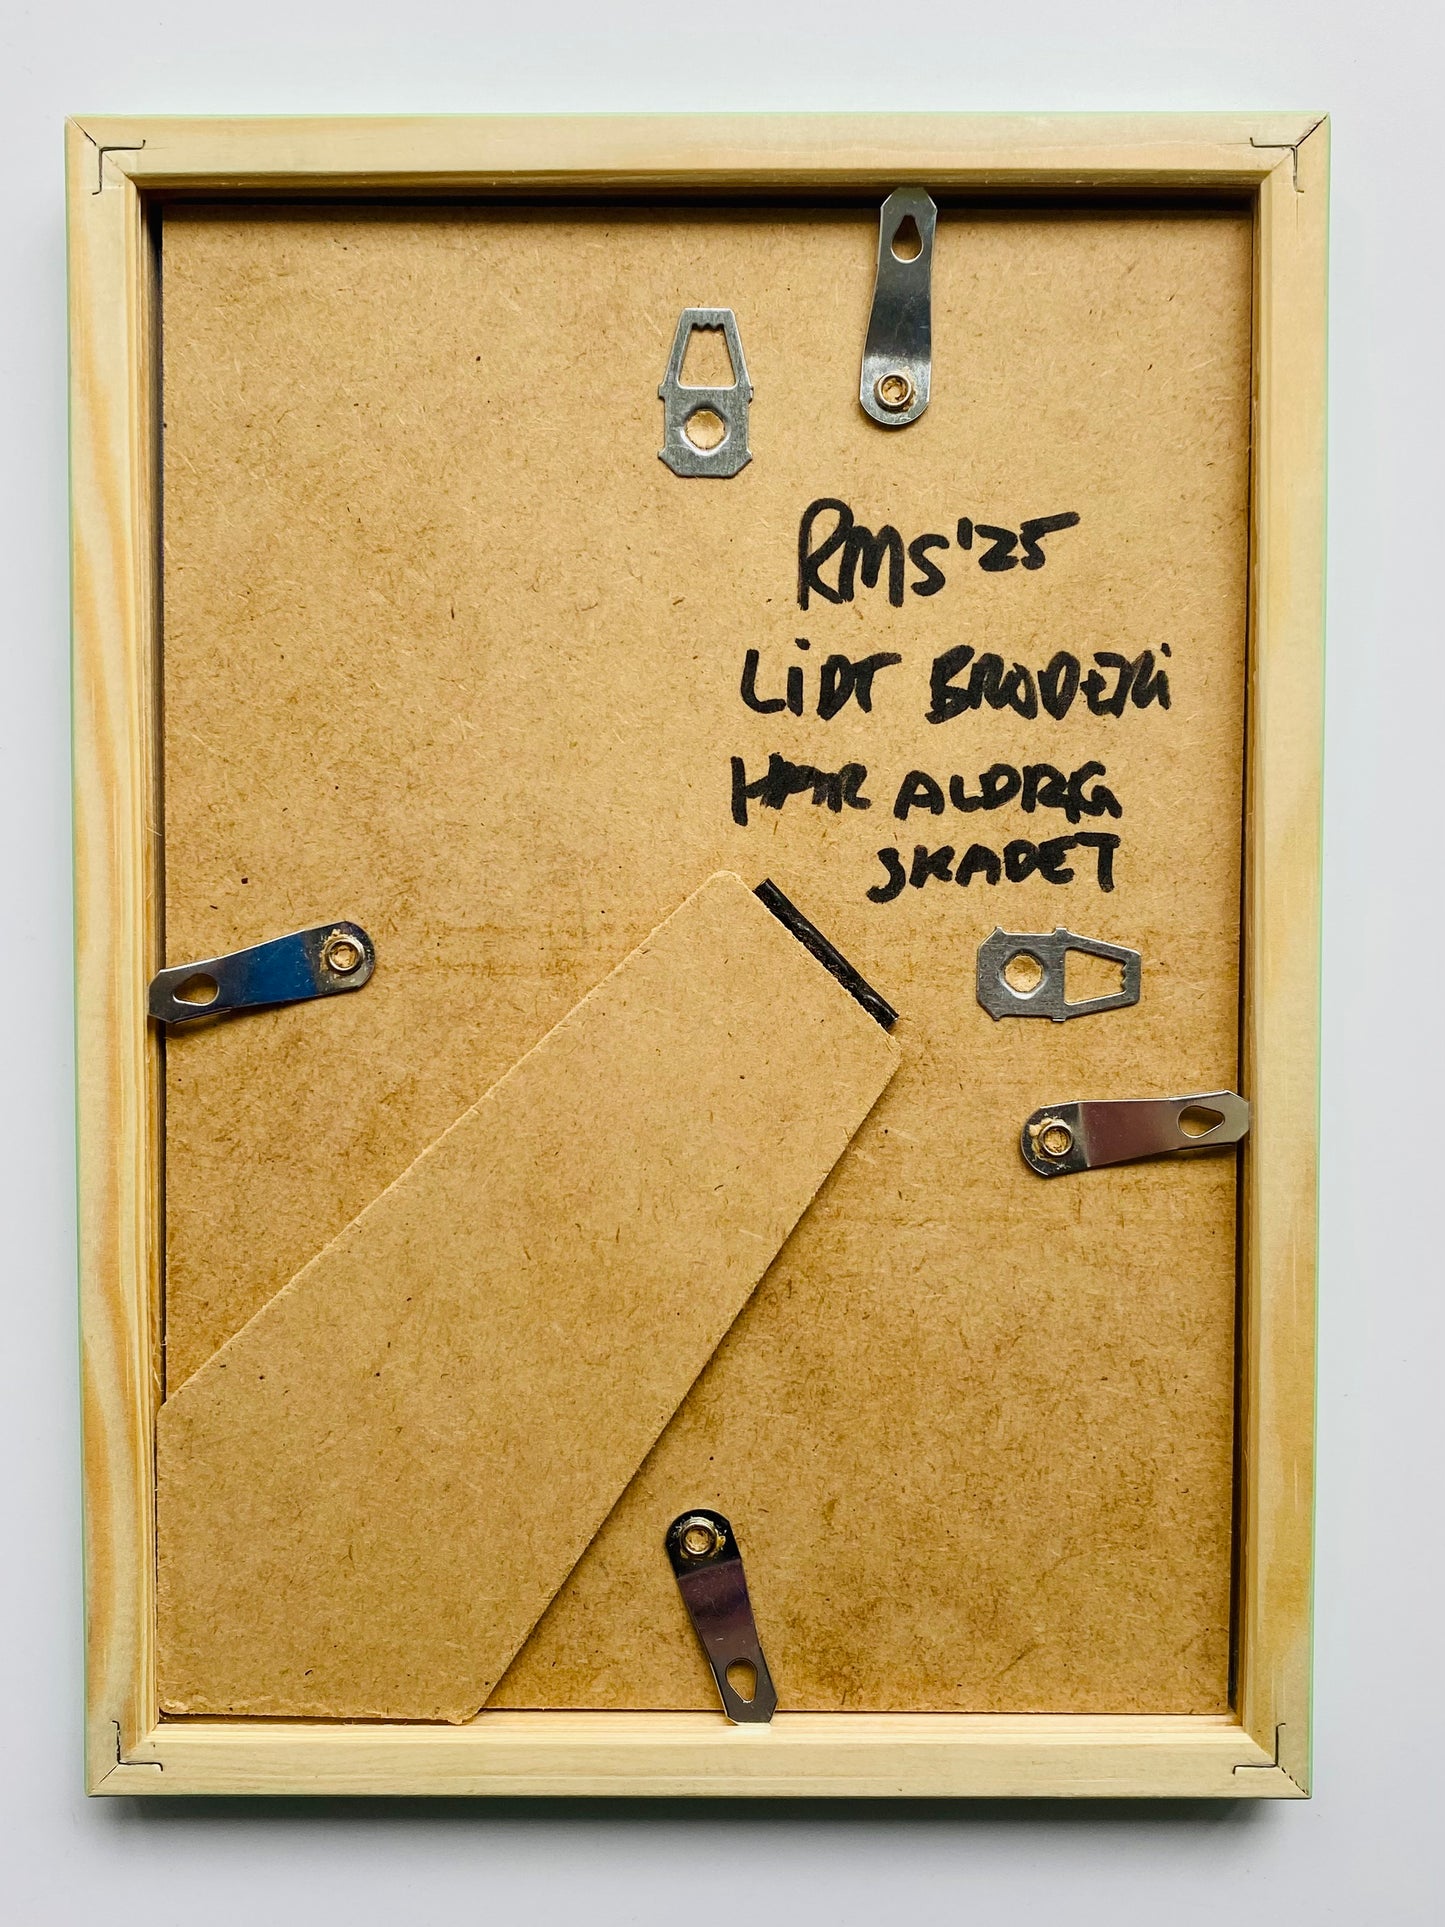 RMS '25
LiDT BRODERi
HAR ALDRIG
SKADET